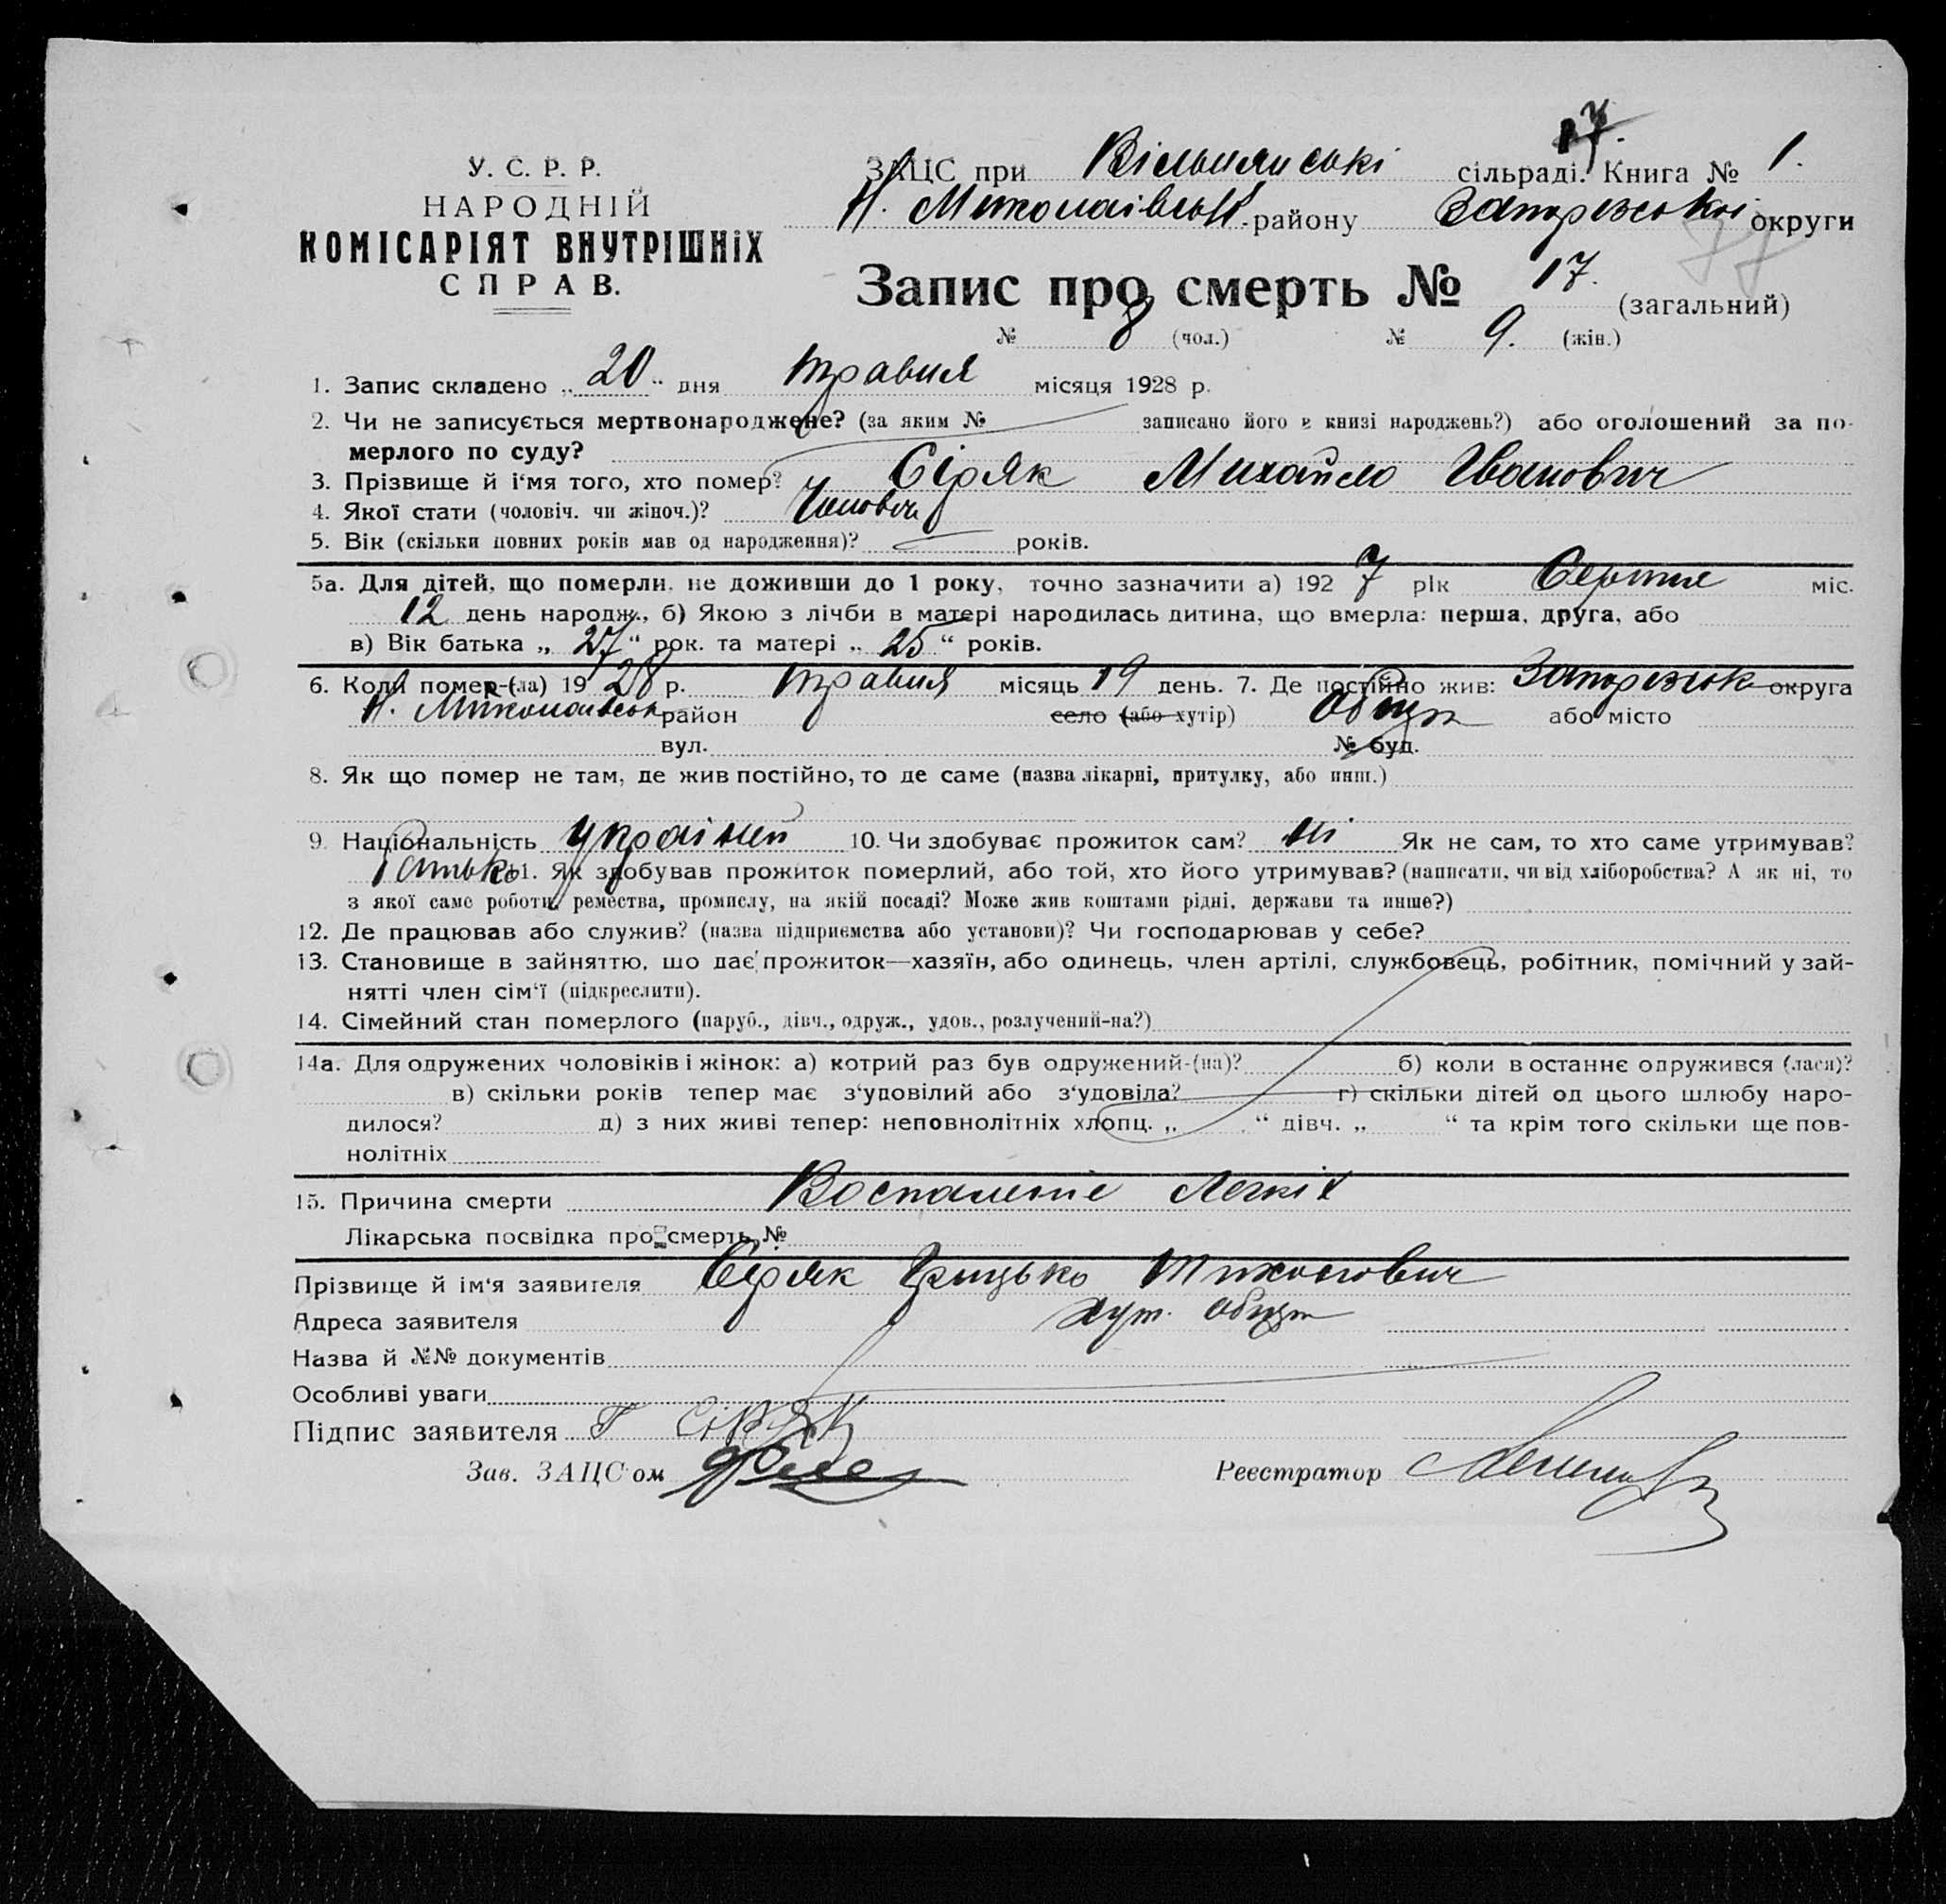 17.
У. С. Р. Р.
НАРОДНІЙ
КОМІСАРІЯТ ВНУТРІШНІХ
СПРАВ.
ЗАЦС при Вільнянські сільраді. Книга № 1.
Н. Миколаівськ. району Запорізькоі округи
77
Запис про смерть № 17. (загальний)
№ 8 (чол.) № 9. (жін.)
1. Запис складено „ 20 “ дня травня місяця 1928 р.
2. Чи не записується мертвонароджене? (за яким № записано його в книзі народжень?) або оголошений за по-
мерлого по суду?
3. Прізвище й і‘мя того, хто помер? Сіряк Михайло Іванович
4. Якої стати (чоловіч. чи жіноч.)? Чоловіч
5. Вік (скільки повних років мав од народження)? років.
5а. Для дітей, що померли, не доживши до 1 року, точно зазначити а) 192 7 рік Серпня міс.
12 день народж., б) Якою з лічби в матері народилась дитина, що вмерла: перша, друга, або
в) Вік батька „ 27 “ рок. та матері „ 25 “ років.
6. Коли помер-(ла) 19 28 р. травня місяць 19 день. 7. Де постійно жив: Запорізьк округа
Н. Миколаівськ район село (або хутір) або місто
вул. № буд.
8. Як що помер не там, де жив постійно, то де саме (назва лікарні, притулку, або инш.)
9. Національність 10. Чи здобуває прожиток сам? ні Як не сам, то хто саме утримував?
Батько 11. Як здобував прожиток померлий, або той, хто його утримував? (написати, чи від хліборобства? А як ні, то
з якої саме роботи, ремества, промислу, на якій посаді? Може жив коштами рідні, держави та инше?)
12. Де працював або служив? (назва підприємства або установи)? Чи господарював у себе?
13. Становище в зайняттю, що дає прожиток—хазяїн, або одинець, член артілі, службовець, робітник, помічний у зай-
нятті член сім‘ї (підкреслити).
14. Сімейний стан померлого (паруб., дівч., одруж., удов., розлучений-на?)
14а. Для одружених чоловіків і жінок: а) котрий раз був одружений-(на)? б) коли в останнє одружився (лася)?
в) скільки років тепер має з‘удовілий або з‘удовіла? г) скільки дітей од цього шлюбу наро-
дилося? д) з них живі тепер: неповнолітніх хлопц. „ “ дівч. „ “ та крім того скільки ще пов-
нолітніх
15. Причина смерти Воспаленіе Легкіх
Лікарська посвідка про смерть №
Прізвище й ім‘я заявителя Сіряк Грицько Тихонович
Адреса заявителя хут.
Назва й №№ документів
Особливі уваги
Підпис заявителя Г СіРЯК
Зав. ЗАЦС'ом Реєстратор